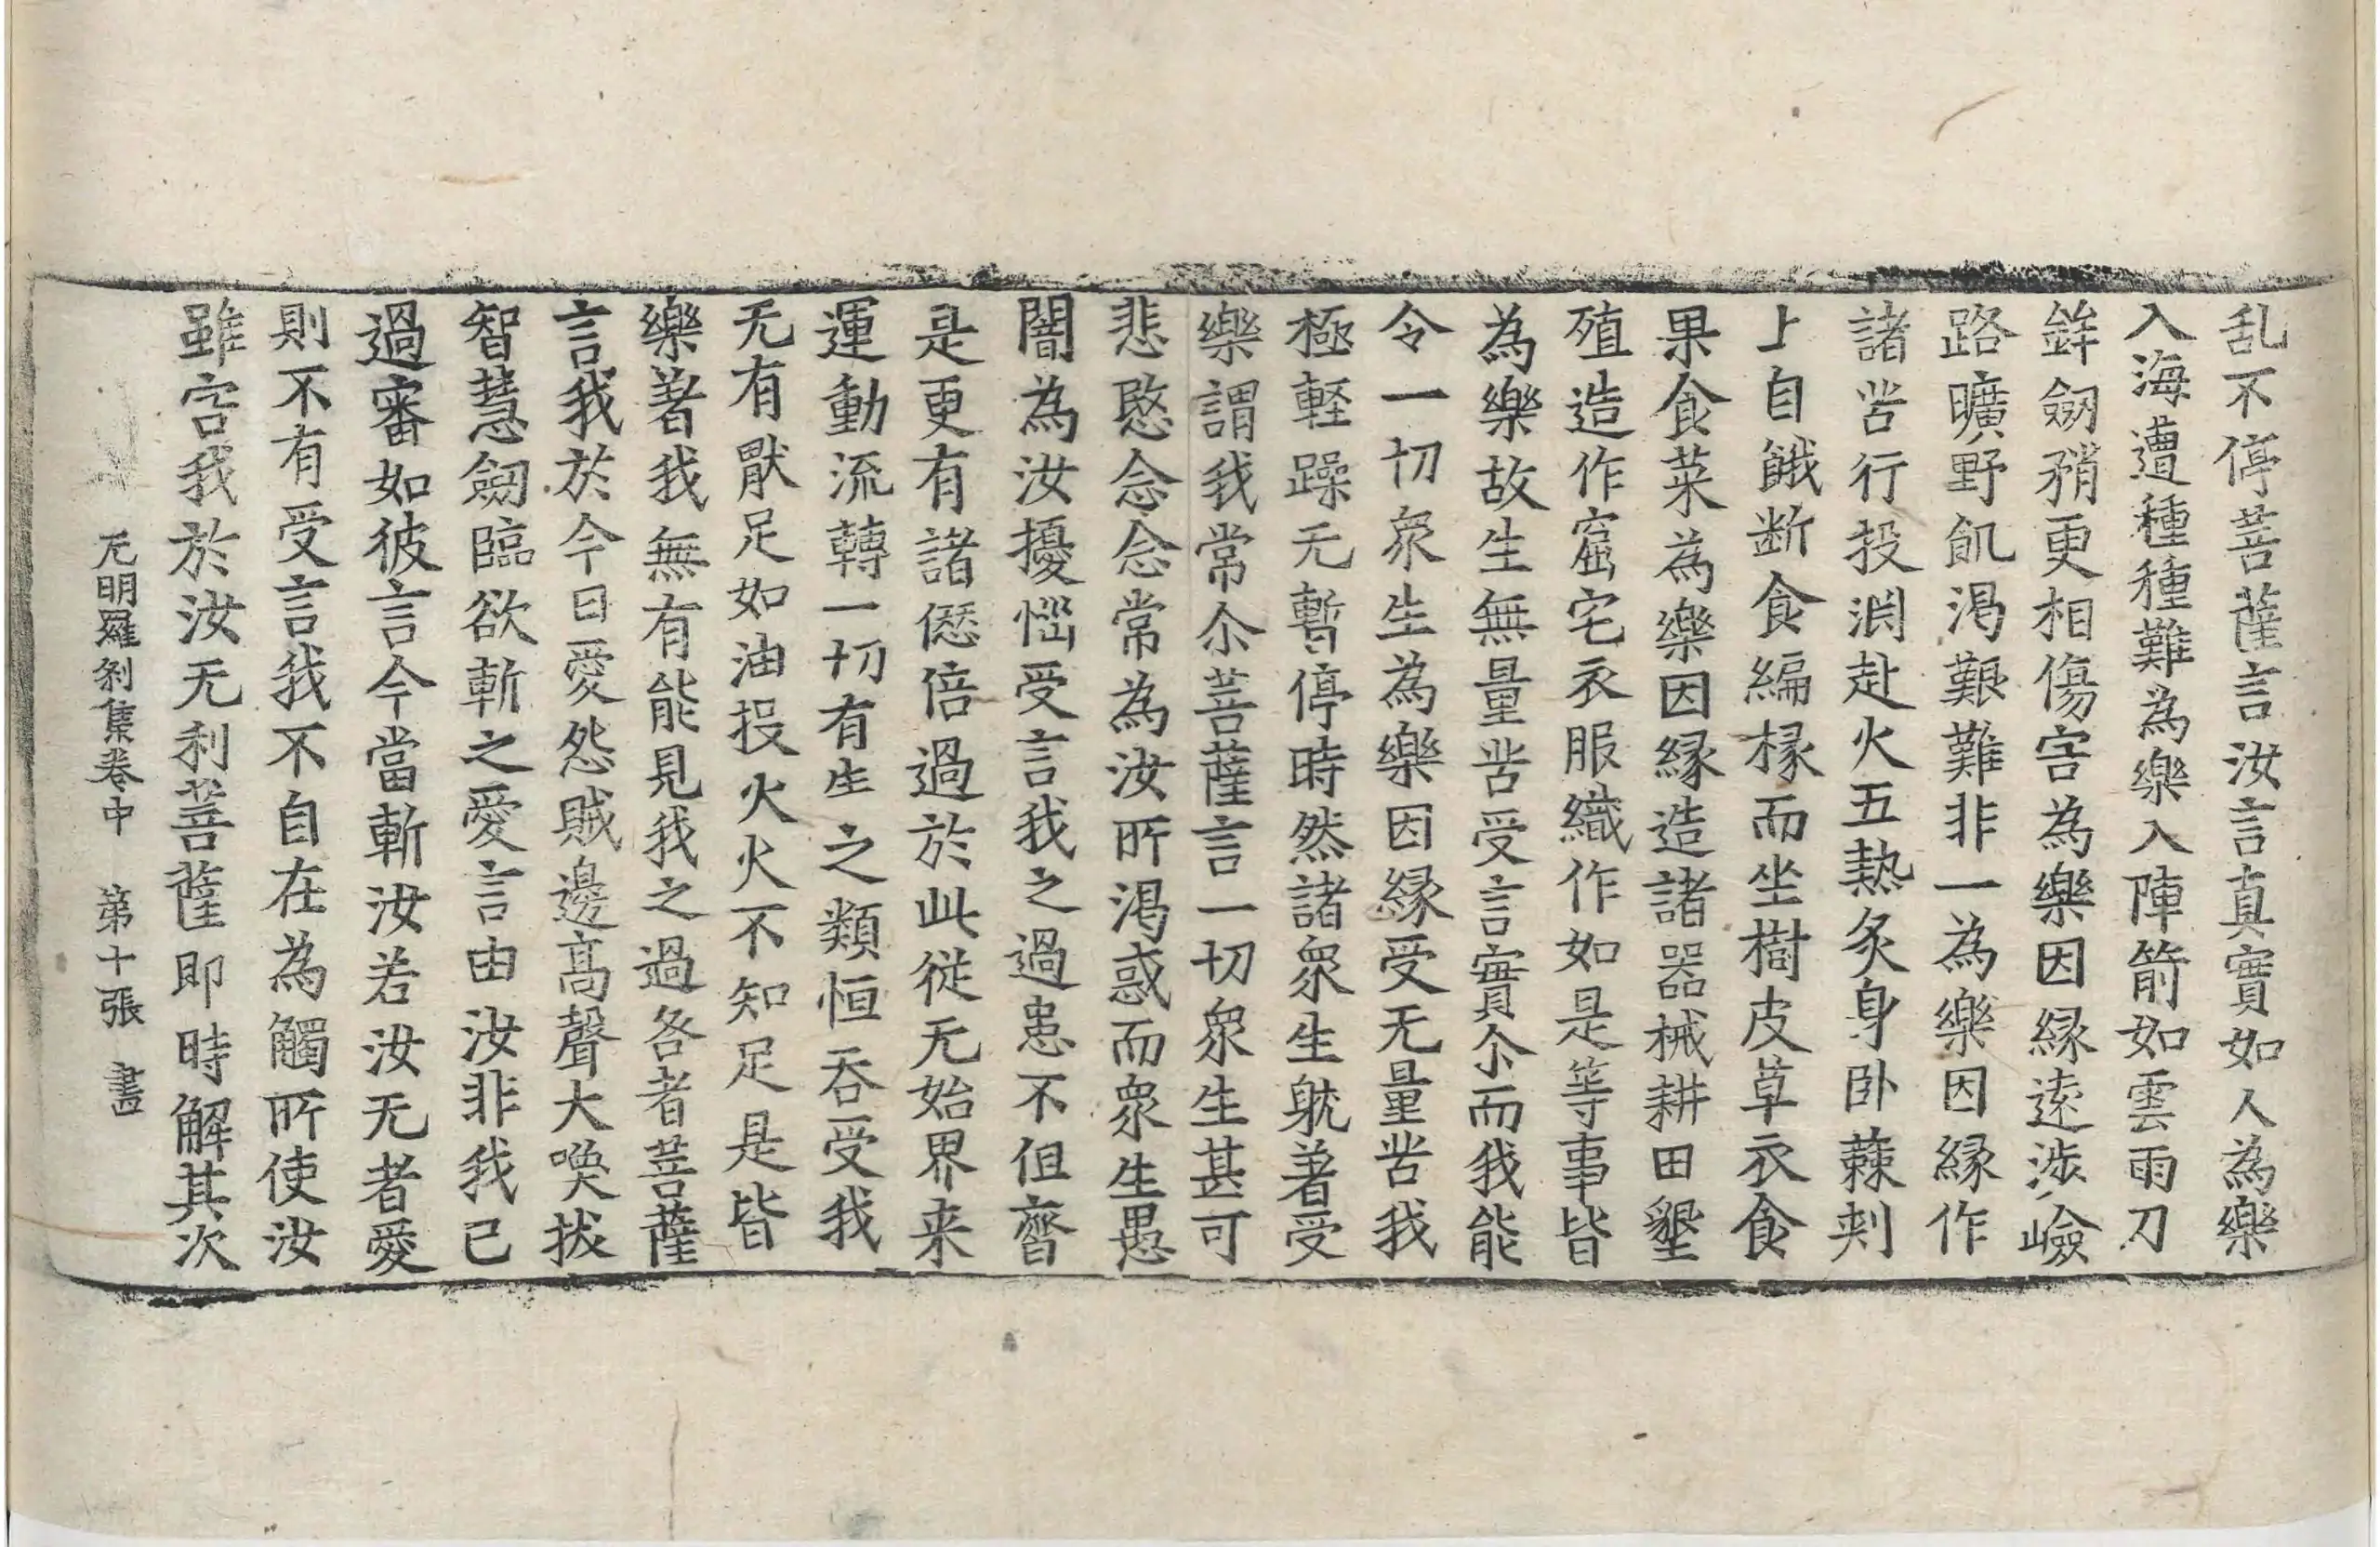 乱不停菩薩言汝言真實如人為樂
入海遭種種難為樂入陣箭如雲雨刀
鉾劒矟更相傷害為樂因縁遠涉嶮
路曠野飢渇艱難非一為樂因縁作
諸苦行投渕赴火五熱炙身卧蕀刺
上自餓断食編椽而坐樹皮草衣食
果食菜為樂因縁造諸器械耕田墾
殖造作窟宅衣服織作如是等事皆
為樂故生無量苦受言實尒而我能
令一切衆生為樂因縁受无量苦我
極軽躁无暫停時然諸衆生躭著受
樂謂我常尒菩薩言一切衆生甚可
悲愍念念常為汝所渇惑而衆生愚
闇為汝擾惱受言我之過患不但齊
是更有諸𠎝倍過於此従无始界来
運動流轉一切有生之類恒吞受我
无有猒足如油投火火不知足是皆
樂著我無有能見我之過咎者菩薩
言我於今日愛怨賊邊高聲大喚拔
智慧劒臨欲斬之愛言由汝非我已
過審如彼言今當斬汝若汝无者愛
則不有受言我不自在為觸所使汝
雖害我於汝无利菩薩即時解其次
无明羅刹集卷中　第十張　書